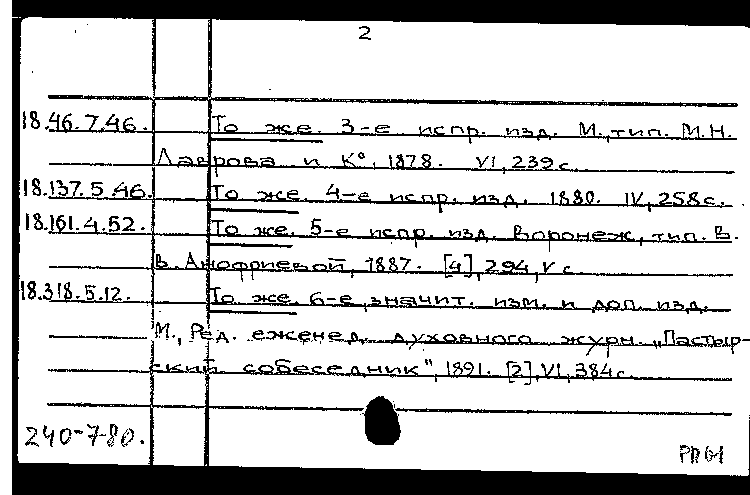 2
18.46.7.46. То же. 3-е испр. изд. М., тип. М.Н.
Лаврова и К°, 1878. VI, 239 с.
18.137.5.46. То же. 4-е испр. изд. 1880. IV, 258 с.
18.161.4.52. То же. 5-е испр. изд. Воронеж, тип. В.
В. Анофриевой, 1887. [4], 294, V с.
18.318.5.12. То же. 6-е, значит. изм. и доп. изд.
М., Ред. еженед. духовного журн. „Пастыр-
ский собеседник", 1891. [2], VI, 384 с.
240-7-80.